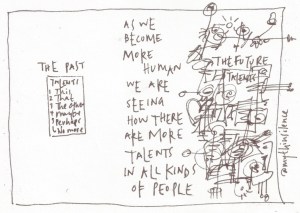 THE PAST
TALENTS
1 This
2 That
3 The other
4 Maybe
5 Perhaps
6 No more
AS WE
BECOME
MORE
HUMAN
WE ARE
SEEING
HOW THERE
ARE MORE
TALENTS
IN ALL KINDS
OF PEOPLE
THE FUTURE
TALENTS